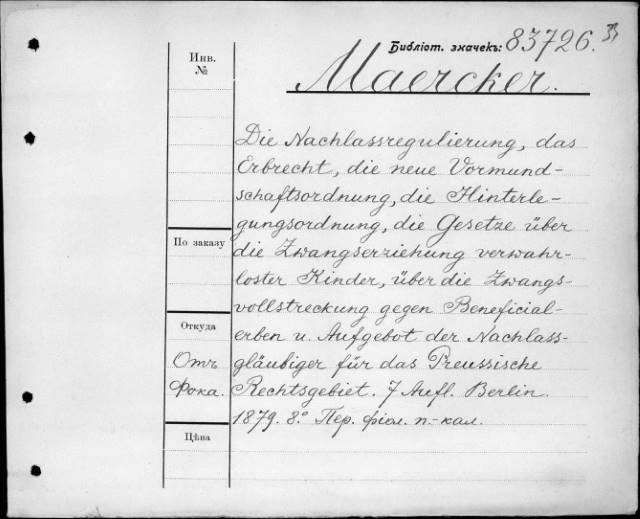 Библіот. значекъ: 83726.
Инв.
№
Maercker.
Die Nachlassregulierung, das
Erbrecht, die neue Vormund-
schaftsordnung, die Hinterle-
gungsordnung, die Gesetze über
По заказу
die Zwangserziehung verwahr-
loster Kinder, über die Zwangs-
vollstreckung gegen Beneficial-
Откуда
erben u. Aufgebot der Nachlass-
Отъ
gläubiger für das Preussische
Фока.
Rechtsgebiet. 7 Aufl. Berlin.
1879. 8.° Пер. фіол. п.-кал.
Цѣна